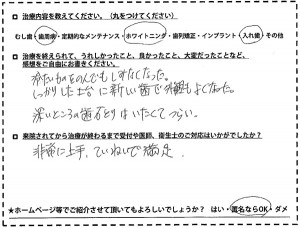 □ 治療内容を教えてください。（丸をつけてください）
むし歯・歯周病・定期的なメンテナンス・ホワイトニング・歯列矯正・インプラント・入れ歯・その他
□ 治療を終えられて、うれしかったこと、良かったこと、大変だったことなど、
感想をご自由にお書きください。
冷たいものをのんでもしみなくなった。
しっかりした土台に新しい歯で外観もよくなった。
深いところの歯石とりはいたくてつらい。
□ 来院されてから治療が終わるまで受付や医師、衛生士のご対応はいかがでしたか？
非常に上手、ていねいで満足
★ホームページ等でご紹介させて頂いてもよろしいでしょうか？ はい・匿名ならOK・ダメ